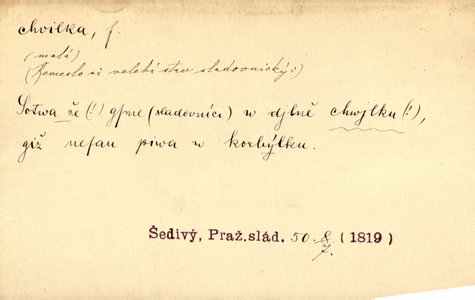 chvilka, f.
(malá)
(Řemeslo si velebí stav sladovnický:)
Sotwa že (!) gsme (sladovníci) w djlně chwjlku (!),
giž nesau piwa w korbýlku.
Šedivý, Praž. slád. 50 8/7. (1819)